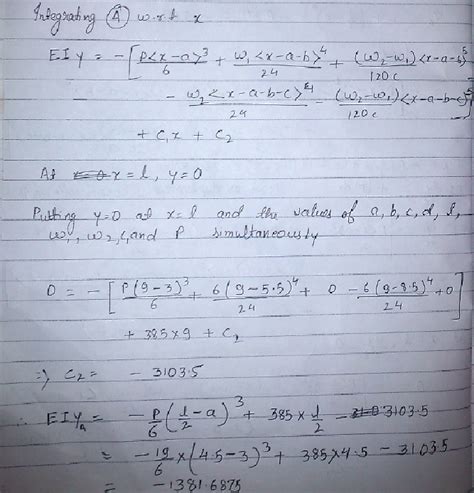 Integrating Ⓐ w.r.t x
EIy = -[P<x-a>³/6 + w₁<x-a-b>⁴/24 + (w₂-w₁)<x-a-b>⁵/120c
- w₂<x-a-b-c>⁴/24 - (w₂-w₁)<x-a-b-c>⁵/120c]
+ C₁x + C₂
At x=l, y=0
Putting y=0 at x=l and the values of a, b, c, d, l,
w₁, w₂, C₁ and P simultaneously
0 = -[P(9-3)³/6 + 6(9-5.5)⁴/24 + 0 - 6(9-8.5)⁴/24 + 0]
+ 385×9 + C₂
⇒ C₂ = -3103.5
∴ EIyₐ = -P/6(l/2-a)³ + 385×l/2 - 3103.5
= -19/6×(4.5-3)³ + 385×4.5 - 3103.5
= -1381.6875